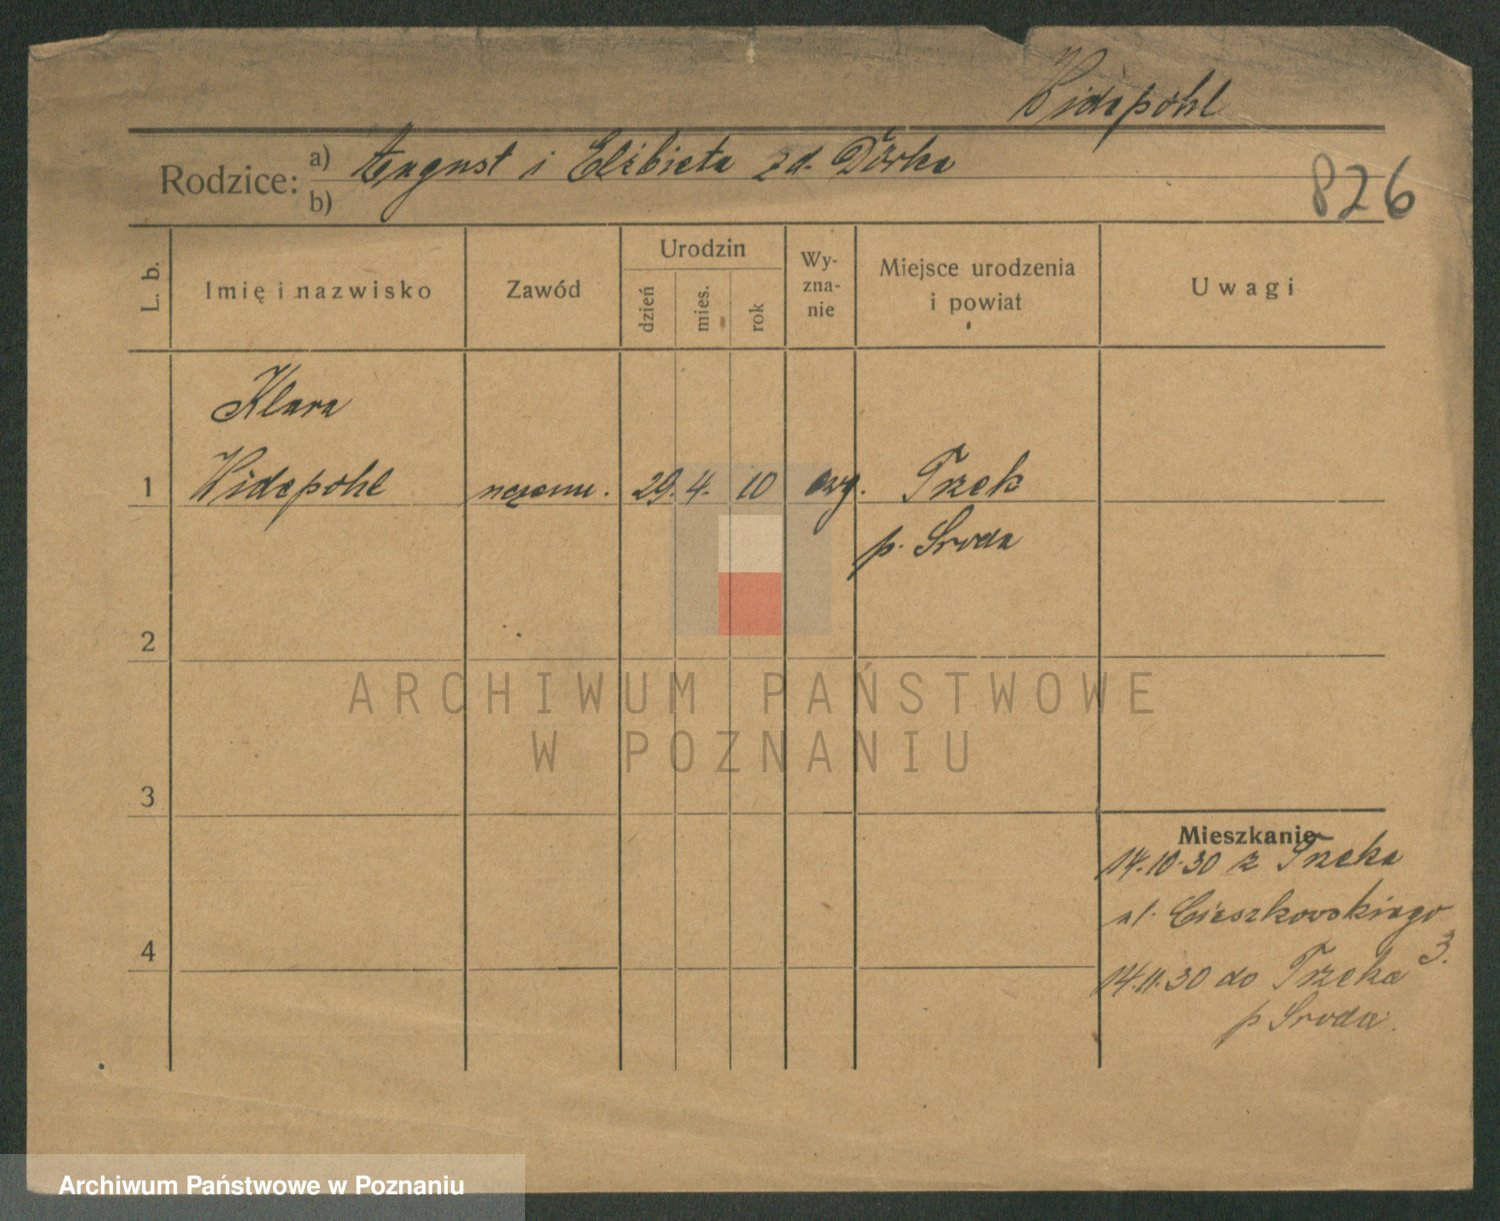 Widepohl
Rodzice: a) August i Elżbieta zd. Dörka
b)
826
L. b.
Imię i nazwisko
Zawód
Urodzin
dzień
mies.
rok
Wy-
zna-
nie
Miejsce urodzenia
i powiat
Uwagi
Klara
1 Widepohl 29. 4. 10 ewg. Trzek
p. Środa
2
3
4
Mieszkanie
14.10.30 z Trzeka
al. Cieszkowskiego
3.
14.11.30 do Trzeka
p Środa.
ARCHIWUM PAŃSTWOWE
W POZNANIU
Archiwum Państwowe w Poznaniu